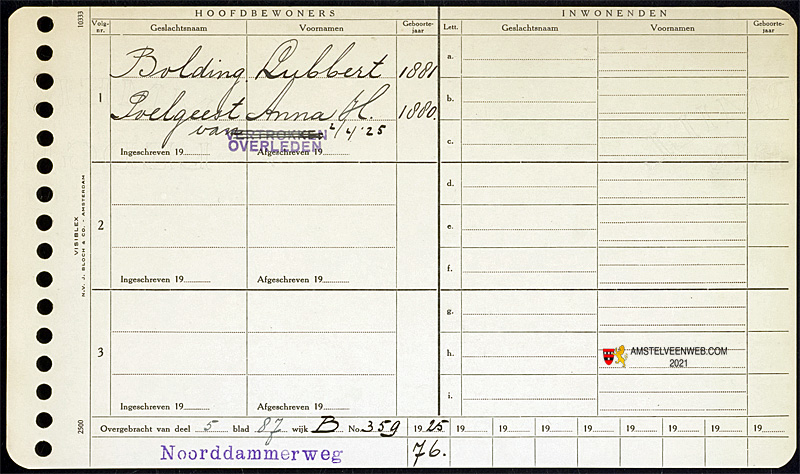 HOOFDBEWONERS INWONENDEN
Volg-nr. Geslachtsnaam Voornamen Geboorte-jaar Lett. Geslachtsnaam Voornamen Geboorte-jaar
10333
1 Bolding Lubbert 1881
Poelgeest Anna H. 1880.
van VERTROKKEN 2/4 '25
OVERLEDEN
Ingeschreven 19 Afgeschreven 19
2
Ingeschreven 19 Afgeschreven 19
3
Ingeschreven 19 Afgeschreven 19
a.
b.
c.
d.
e.
f.
g.
h. AMSTELVEENWEB.COM
2021
i.
VISIBLEX
N.V. J. BLOCH & CO. - AMSTERDAM
2500
Overgebracht van deel 5 blad 87 wijk B No. 359 1925 19 19 19 19 19 19 19 19
Noorddammerweg 76.